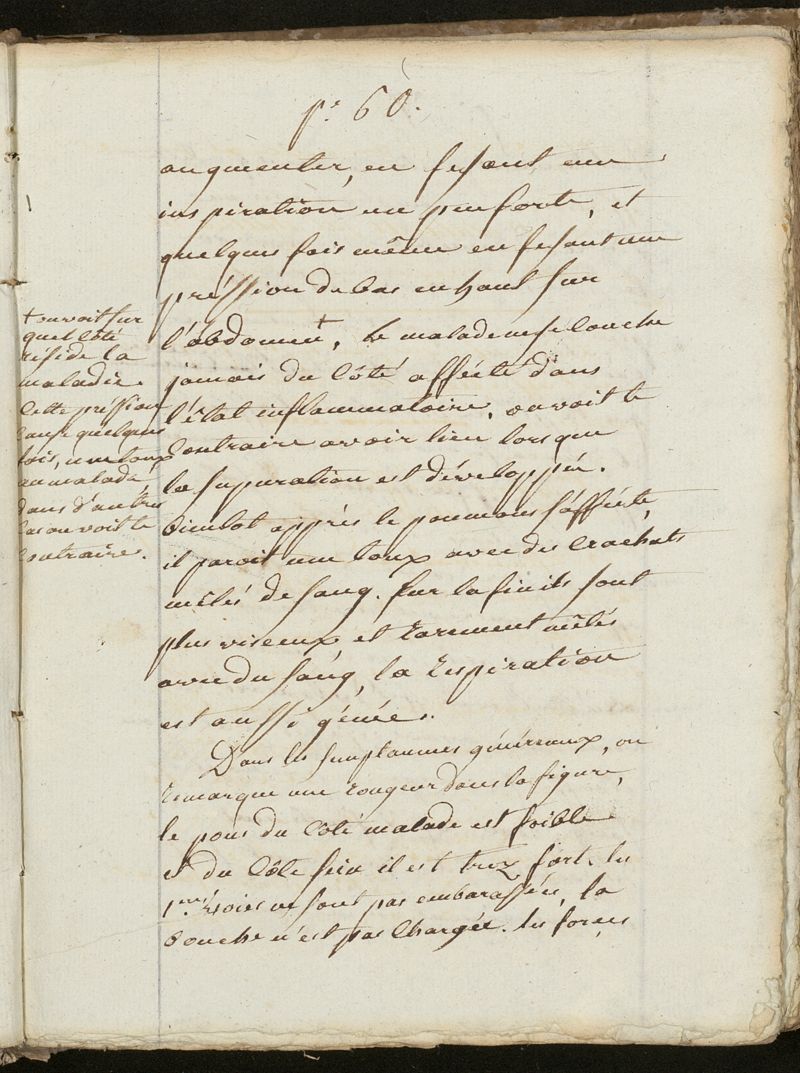 p.e 60.
augmenter, en fesant une
inspiration un peu forte, et
quelques fois même en fesant une
préssion de bas en haut sur
l'abdomen +, le malade ne se couche
jamais du côté afféctê dans
l'êtat inflammatoire, on voit le
contraire avoir lieu lorsque
la supuration est développée.
bientot apprès le poumons s'afféctê,
il paroit une toux avec des crachats
mêlés de sang. sur la fin ils sont
plus viseux et rarement mêlés
avec du sang, la respiration
est aussi génée.
Dans les simptaumes généraux, on
remarque une rougeur dans la figure,
le pous du côté malade est foible
et du côte sein il est trex fort. les
1eres voies ne sont pas embarassées, la
bouche n'est pas chargée. les forces
+ on voit sur
quel côté
réside la
maladie.
Cette préssion
cause quelques
fois, une toux
au malade
dans d'autres
cas on voit le
contraire.